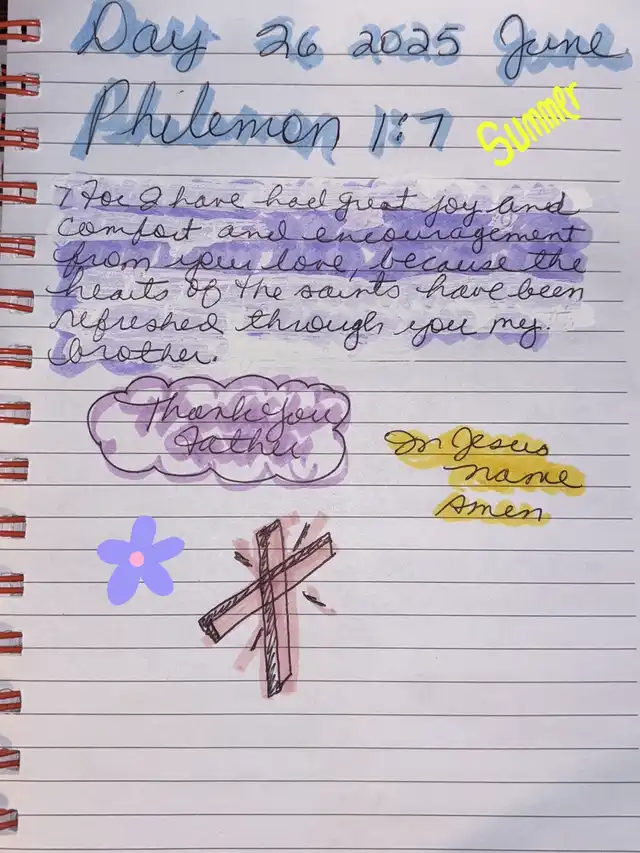 Day 26 2025 June
Philemon 1:7
Summer
7 For I have had great joy and
comfort and encouragement
from your love, because the
hearts of the saints have been
refreshed through you my
brother.
Thank You
Father
In Jesus
name
Amen